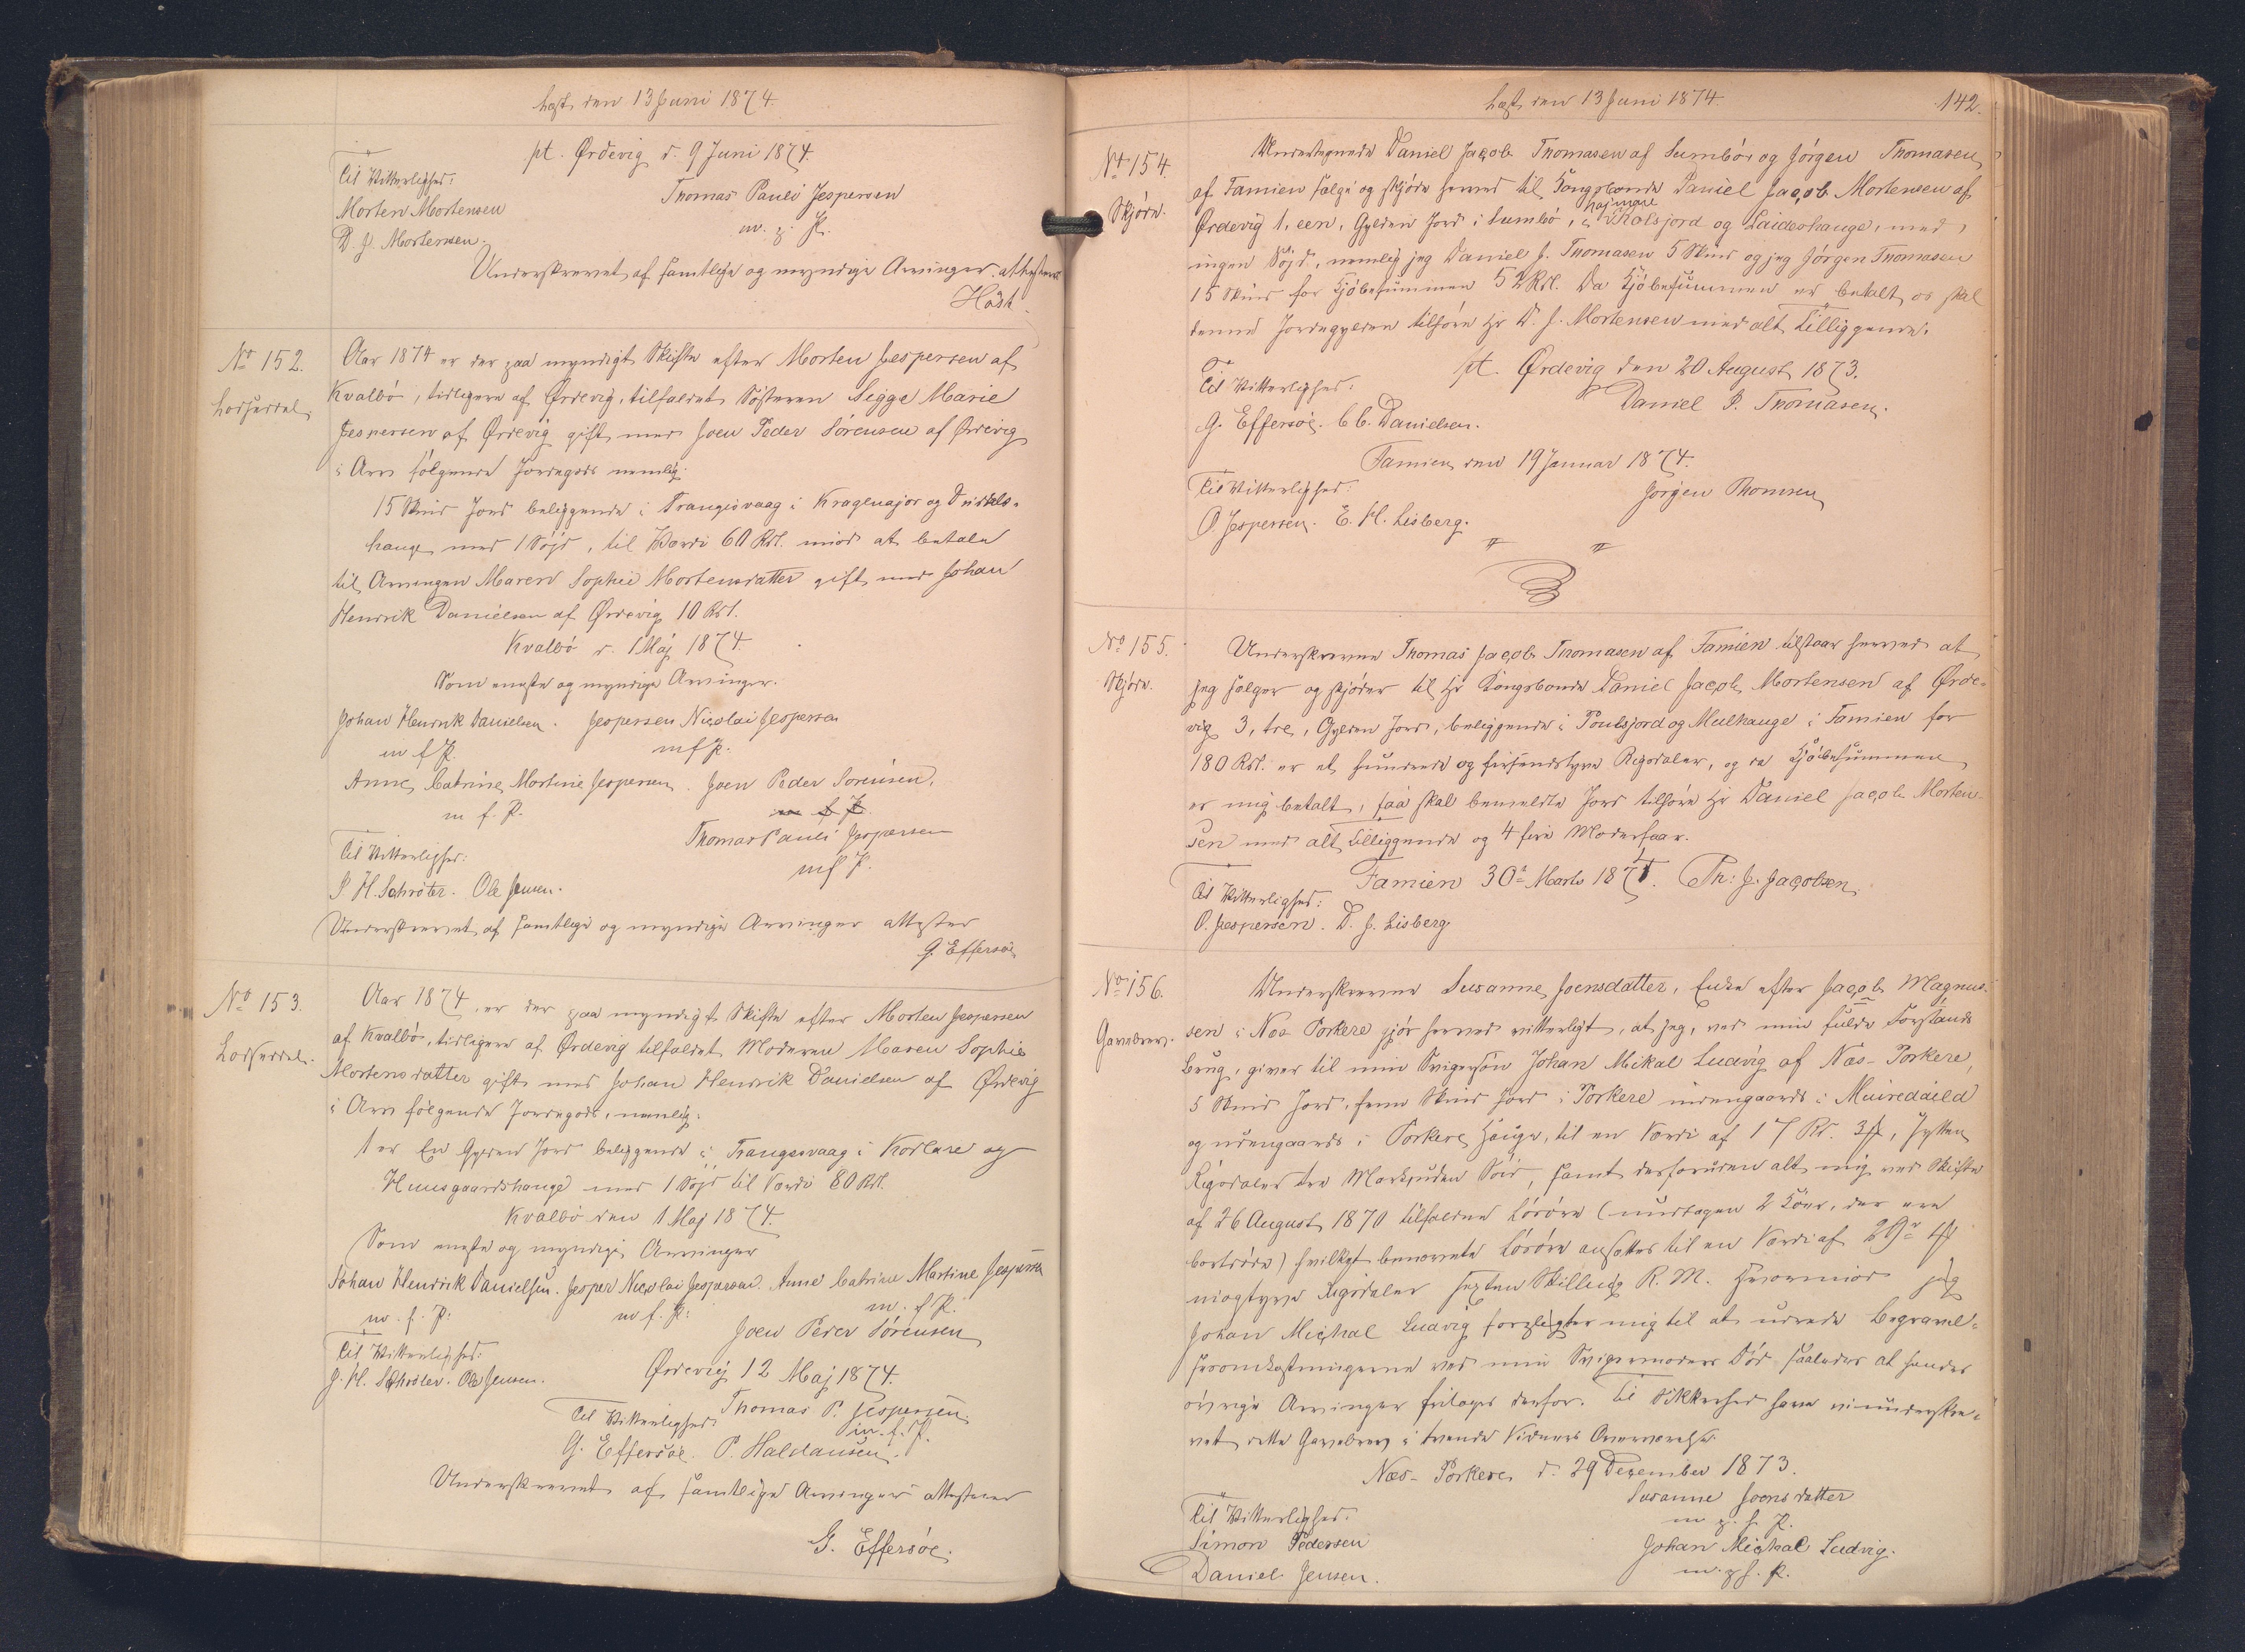 Læst den 13 Juni 1874.
pt. Ørdevig d. 9 Juni 1874.
Til Vitterlighed:
Thomas Pauli Jespersen
Morten Mortensen
m. p. P.
D. J. Mortensen.
Underskrevet af samtlige og myndige Arvinger attesterer
Høst.
No 152.
Lodseddel.
Aar 1874 er der paa myndigt Skifte efter Morten Jespersen af
Kvalbö, tidligere af Ørdevig, tilfaldet Søsteren Sigga Marie
Jespersen af Ørdevig gift med Joen Peder Sörensen af Ørdevig
i Arv følgende Jordegods nemlig:
15 Skind Jord beliggende i Trangisvaag i Kragenajor og
hauge med 1 Söjd, til Værdi 60 Rdl. mod at betale
til Arvingen Maren Sophie Mortensdatter gift med Johan
Henrik Danielsen af Ørdevig 10 Rdl.
Kvalbö d. 1 Maj 1874.
Som eneste og myndige Arvinger.
Johan Henrik Danielsen. Jespersen Nicolai Jespersen
m f P. m f P.
Anne Catrine Martine Jespersen. Joen Peder Sorensen.
m. f. P. m f P.
Thomas Pauli Jespersen
m f P.
Til Vitterlighed:
P. H. Schröter. Ole Jensen.
Underskrevet af samtlige og myndige Arvinger attester
G. Effersøe
No 153.
Lodseddel.
Aar 1874, er der paa myndigt Skifte efter Morten Jespersen
af Kvalbö, tidligere af Ørdevig tilfaldet Moderen Maren Sophie
Mortensdatter gift med Johan Henrik Danielsen af Ørdevig
i Arv følgende Jordegods, nemlig:
1 er En Gylden Jord beliggende i Trangisvaag i Korlare og
Huusgaardshauge med 1 Söjd til Værdi 80 Rdl.
Kvalbö den 1 Maj 1874.
Som eneste og myndige Arvinger
Johan Henrik Danielsen. Jesper Nicolai Jespersen. Anne Catrine Martine Jespersen
m. f. P. m f. P. m. f P.
Joen Peder Sörensen
Til Vitterlighed:
J. H. Schröter. Ole Jensen.
Ørdevig 12 Maj 1874.
Til Vitterlighed: Thomas P. Jespersen.
m. f. P.
G. Effersöe. P. Haldansen.
Underskrevet af samtlige Arvinger attesterer
G. Effersöe.
Læst den 13 Juni 1874.
142.
No 154.
Skjöde.
Undertegnede Daniel Jacob Thomasen af Sumbö og Jörgen Thomasen
af Famien sælge og skjöde herved til Kongsbonde Daniel Jacob Mortensen af
Ørdevig 1, een, Gylden Jord i Sumbö, i Kolsjord og Laideshauge, med
ingen Söjd, nemlig jeg Daniel J. Thomasen 5 Skind og jeg Jörgen Thomasen
15 Skind for Kjöbesummen 52 Rdl. Da Kjöbesummen er betalt, os skal
denne Jordegylden tilhöre Hr D. J. Mortensen med alt Tilliggende.
pt. Ørdevig den 20 August 1873.
Til Vitterlighed:
Daniel J. Thomasen.
G. Effersöe. C C. Danielsen.
Famien den 19 Januar 1874.
Til Vitterlighed:
Jörgen Thomsen
O. Jespersen. E. H. Lisberg.
No 155.
Skjöde.
Underskrevne Thomas Jacob Thomasen af Famien tilstaar herved at
jeg sælger og skjöder til Hr Kongsbonde Daniel Jacob Mortensen af Ørde-
vig 3, tre, Gylden Jord, beliggende i Poulsjord og Mulhauge i Famien for
180 Rdl. er et hundrede og firsindstyve Rigsdaler, og da Kjöbesummen
er mig betalt, saa skal bemeldte Jord tilhöre Hr Daniel Jacob Morten-
sen med alt Tilliggende og 4 fire Moderfaar.
Famien 30te Marts 1874. Th: J. Jacobsen
Til Vitterlighed:
O. Jespersen. D. J. Lisberg
No 156.
Gavebrev.
Underskrevne Susanne Joensdatter, Enke efter Jacob Magnus-
sen i Nes Porkere gjör herved vitterligt, at jeg, ved min fulde Forstands
Brug, giver til min Svigersön Johan Mikal Ludvig af Næs-Porkere,
5 Skind Jord, fem Skind Jord i Porkere indengaards i Muiredaild
og udengaards i Porkere Hauge, til en Værdi af 17 Rd. 3 , sytten
Rigsdaler tre Mark, uden Söid, samt desforuden alt mig ved Skifte
af 26 August 1870 tilfaldne Lösöre (undtagen 2 Köer, der ere
bortdöde) hvilket benævnte Lösöre ansættes til en Værdi af
niogtyve Rigsdaler sexten Skilling R. M. Hvorimod jeg
Johan Michal Ludvig forpligter mig til at udrede Begravel-
sesomkostningerne ved min Svigermoders Död saaledes at hendes
övrige Arvinger fritages derfor. Til Sikkerhed have vi underskre-
vet dette Gavebrev i tvende Vidners Overværelse.
Næs-Porkere, d. 29 Dezember 1873.
Susanne Joensdatter
Til Vitterlighed:
m. p. f. P.
Simon Pedersen
Johan Michal Ludvig.
Daniel Jensen.
m. p f. P.